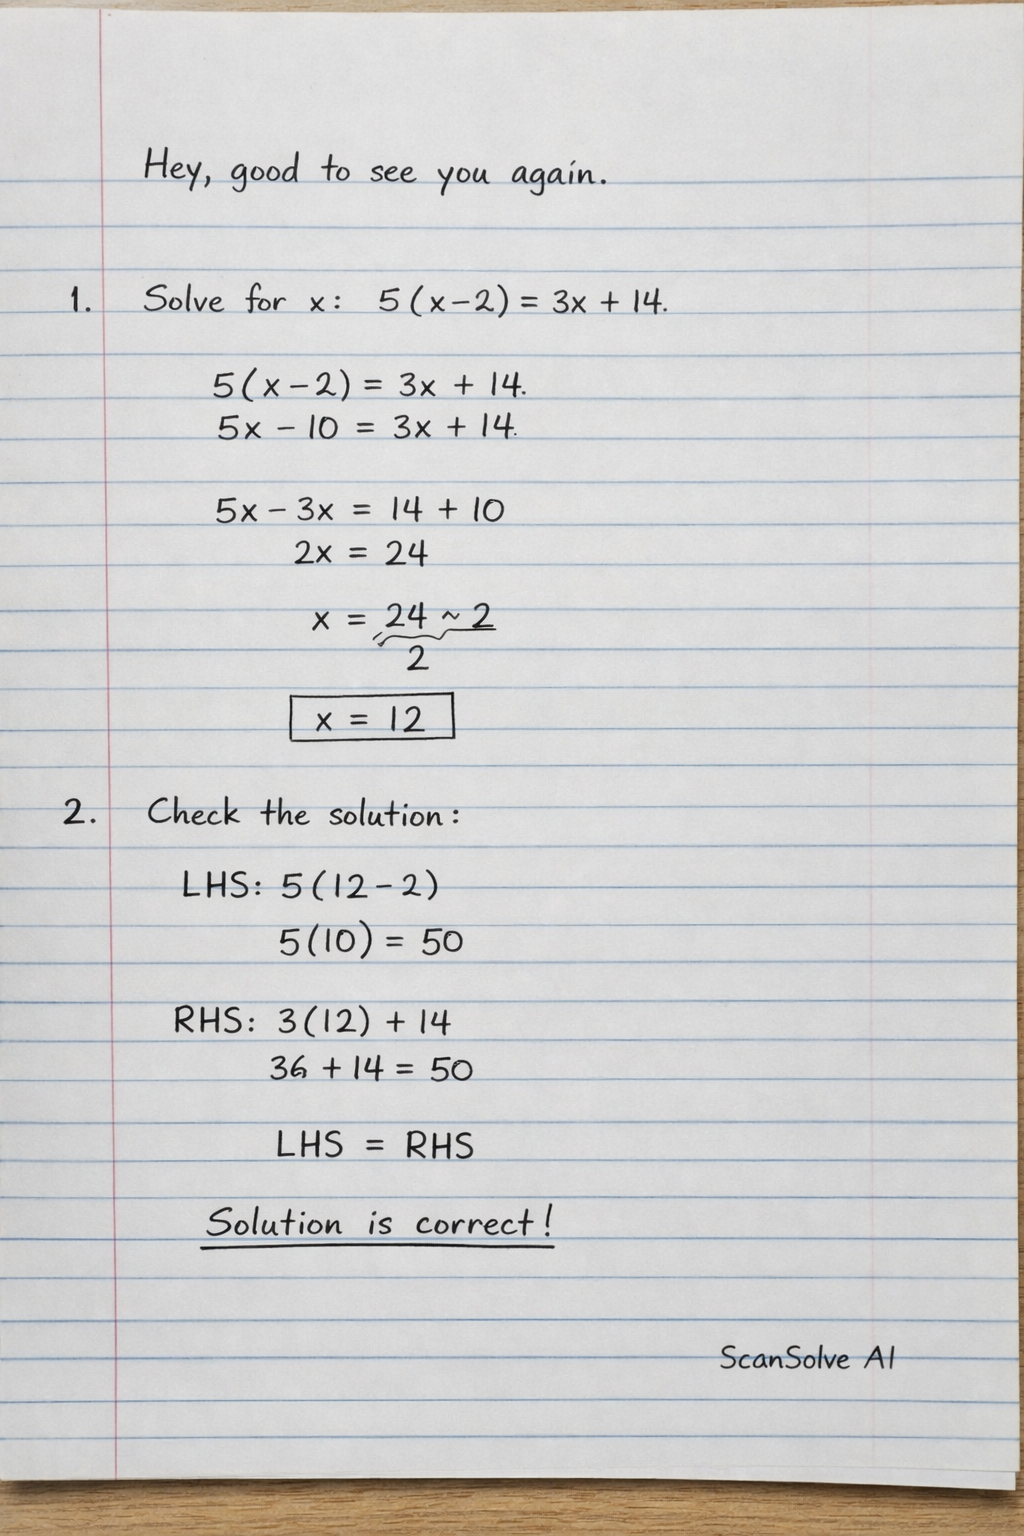 Hey, good to see you again.
1. Solve for x: 5(x-2) = 3x + 14.
5(x-2) = 3x + 14.
5x - 10 = 3x + 14.
5x - 3x = 14 + 10
2x = 24
x = 24 ~ 2
2
x = 12
2. Check the solution:
LHS: 5(12-2)
5(10) = 50
RHS: 3(12) + 14
36 + 14 = 50
LHS = RHS
Solution is correct!
ScanSolve AI